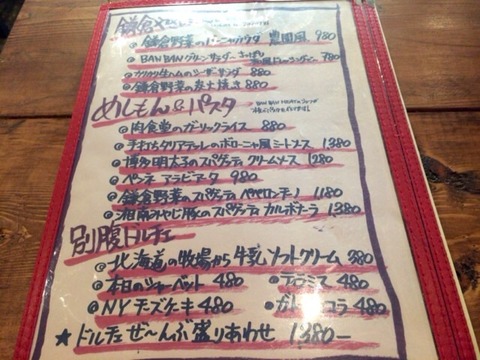 鎌倉
鎌倉野菜のバーニャカウダ 農園風 980
BAN BAN グリーンサラダ〜さっぱり 780
カリカリ生ハムのシーザーサラダ 880
鎌倉野菜の炭火焼き 880
めしもん&パスタ
肉食堂のガーリックライス 880
手打ちタリアテッレのボローニャ風ミートソース 1380
博多明太子のスパゲッティ クリームソース 1280
ペンネ アラビアータ 980
鎌倉野菜のスパゲッティ ペペロンチーノ 1180
湘南みやじ豚のスパゲッティ カルボナーラ 1380
別腹ドルチェ
北海道の牧場から 牛乳ソフトクリーム 380
本日のシャーベット 480 ティラミス 480
NYチーズケーキ 480 ガトーショコラ 480
★ ドルチェぜ〜んぶ盛りあわせ 1380-